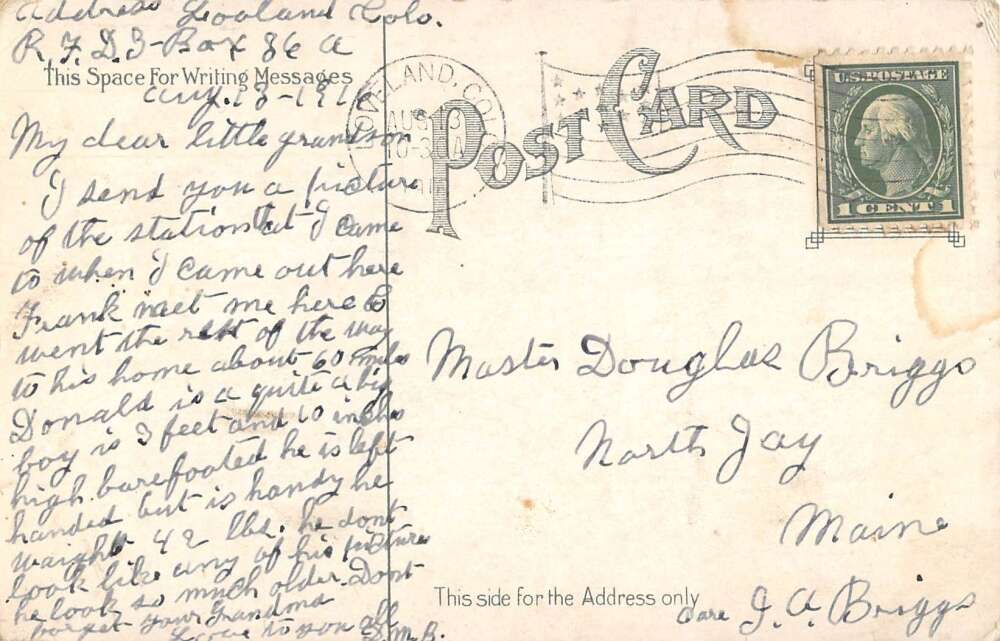 Address Loveland Colo.
R.F.D. 3 - Box 86 a
This Space For Writing Messages
Aug. 13 - 191
My dear little grandson
I send you a picture
of the station that I came
to when I came out here
Frank met me here &
went the rest of the way
to his home about 60 miles
Donald is a quite a big
boy is 3 feet and 10 inches
high barefooted he is left
handed but is handy he
waight 42 lbs. he dont
look like any of his picture
he look so much older. Dont
forget your Grandma
Love to you all
S.M.B.
LOVELAND, COLO.
AUG 13
10-30A
POST CARD
U.S. POSTAGE
1 CENT 1
Master Douglas Briggs
North Jay
Maine
This side for the Address only
Care J. A. Briggs